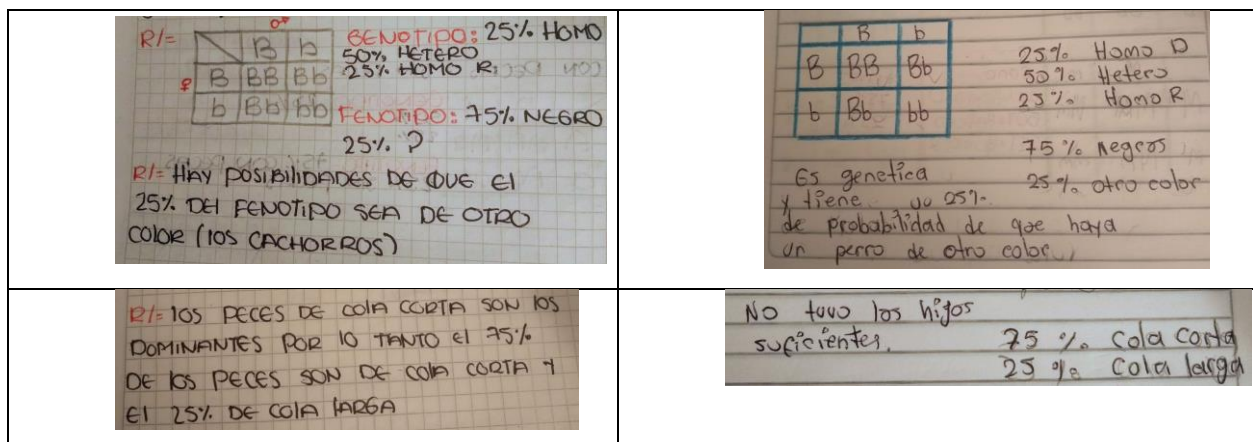 R/= ♂
B b
♀ B BB Bb
b Bb bb
GENOTIPO: 25% HOMO
50% HETERO
25% HOMO R.
FENOTIPO: 75% NEGRO
25% ?
R/= HAY POSIBILIDADES DE QUE El
25% DEl FENOTIPO SEA DE OTRO
COlOR (lOS CACHORROS)
B b
B BB Bb
b Bb bb
25% Homo D
50% Hetero
25% Homo R
75% negros
25% otro color
Es genetica
y tiene un 25%
de probabilidad de que haya
un perro de otro color
R/= lOS PECES DE COlA CORTA SON lOS
DOMINANTES POR lO TANTO El 75%
DE lOS PECES SON DE COlA CORTA Y
El 25% DE COlA lARGA
No tuvo los hijos
suficientes.
75 % cola corta
25 % cola larga